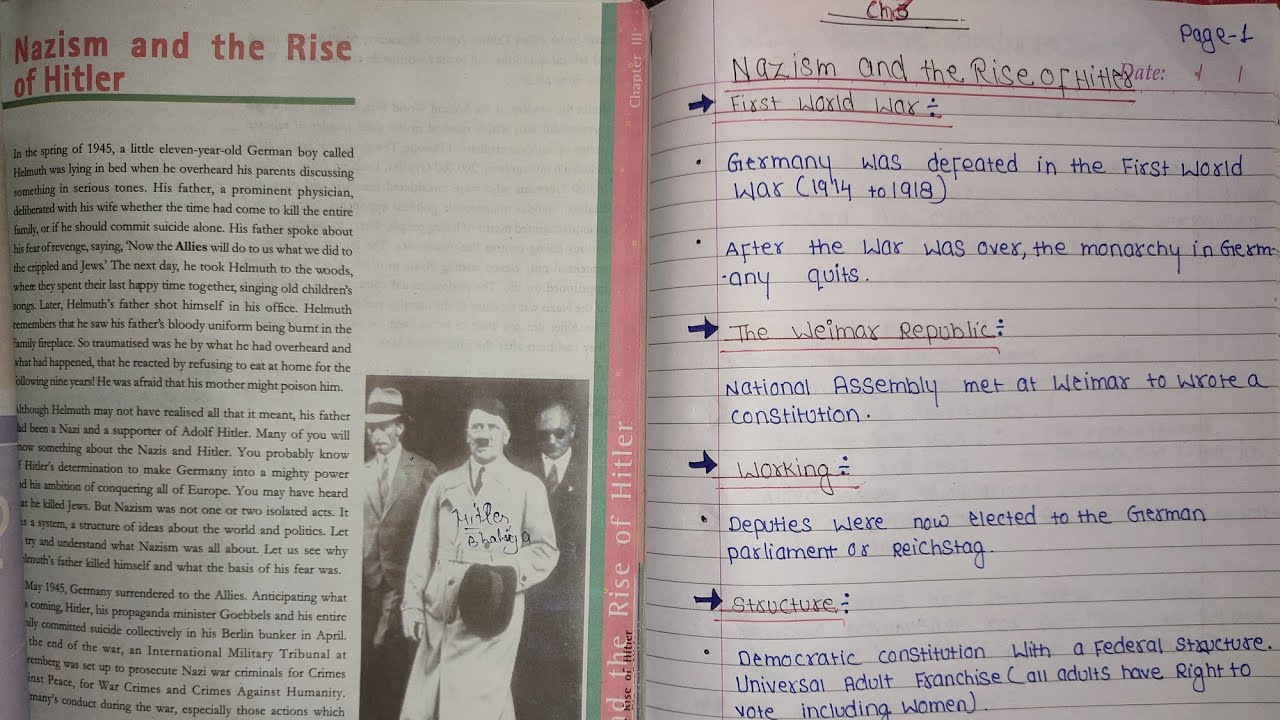 Nazism and the Rise
of Hitler
In the spring of 1945, a little eleven-year-old German boy called
Helmuth was lying in bed when he overheard his parents discussing
something in serious tones. His father, a prominent physician,
deliberated with his wife whether the time had come to kill the entire
family, or if he should commit suicide alone. His father spoke about
his fear of revenge, saying, ‘Now the Allies will do to us what we did to
the crippled and Jews.’ The next day, he took Helmuth to the woods,
where they spent their last happy time together, singing old children’s
songs. Later, Helmuth’s father shot himself in his office. Helmuth
remembers that he saw his father’s bloody uniform being burnt in the
family fireplace. So traumatised was he by what he had overheard and
what had happened, that he reacted by refusing to eat at home for the
following nine years! He was afraid that his mother might poison him.
Although Helmuth may not have realised all that it meant, his father
had been a Nazi and a supporter of Adolf Hitler. Many of you will
know something about the Nazis and Hitler. You probably know
of Hitler’s determination to make Germany into a mighty power
and his ambition of conquering all of Europe. You may have heard
that he killed Jews. But Nazism was not one or two isolated acts. It
was a system, a structure of ideas about the world and politics. Let
try and understand what Nazism was all about. Let us see why
Helmuth’s father killed himself and what the basis of his fear was.
May 1945, Germany surrendered to the Allies. Anticipating what
coming, Hitler, his propaganda minister Goebbels and his entire
family committed suicide collectively in his Berlin bunker in April.
the end of the war, an International Military Tribunal at
Nuremberg was set up to prosecute Nazi war criminals for Crimes
against Peace, for War Crimes and Crimes Against Humanity.
Germany’s conduct during the war, especially those actions which
Hitler
Chapter III
nd the Rise of Hitler
Rise of Hitler
Ch 3
Page-1
Date:
Nazism and the Rise of Hitler
→ First World War ÷
• Germany was defeated in the First World
War (1914 to 1918)
• After the war was over, the monarchy in Germ-
-any quits.
→ The Weimar Republic ÷
National Assembly met at Weimar to wrote a
constitution.
→ Working ÷
• Deputies were now elected to the German
parliament or Reichstag.
→ Structure ÷
• Democratic constitution with a Federal Structure.
Universal Adult Franchise (all adults have Right to
vote including women).